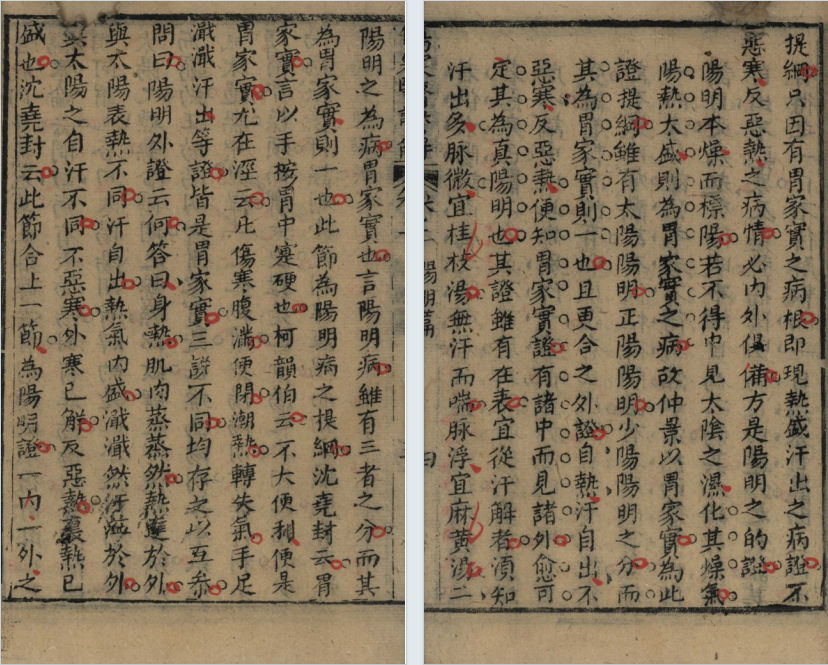 陽明之為病胃家實也言陽明病雖有三者之分而其
為胃家實則一也此節為陽明病之提綱沈堯封云胃
家實言以手按胃中寔硬也柯韻伯云不大便利便是
胃家實尤在涇云凡傷寒腹滿便閉潮熱轉失氣手足
濈濈汗出等證皆是胃家實三說不同均存之以互叅
問曰陽明外證云何答曰身熱肌肉蒸蒸然熱達於外
與太陽表熱不同汗自出熱氣內盛濈濈然汗溢於外
與太陽之自汗不同不惡寒外寒已解反惡熱裏熱已
盛也沈堯封云此節合上一節為陽明證一內一外之
提綱只因有胃家實之病根即現熱盛汗出之病證不
惡寒反惡熱之病情必內外俱備方是陽明之的證
陽明本燥而標陽若不得中見太陰之濕化其燥氣
陽熱太盛則為胃家實之病故仲景以胃家實為此
證提綱雖有太陽陽明正陽陽明少陽陽明之分而
其為胃家實則一也且更合之外證自熱汗自出不
惡寒反惡熱便知胃家實證有諸中而見諸外愈可
定其為真陽明也其證雖有在表宜從汗解者須知
汗出多脉微宜桂枝湯無汗而喘脉浮宜麻黃湯二
陽明篇
四